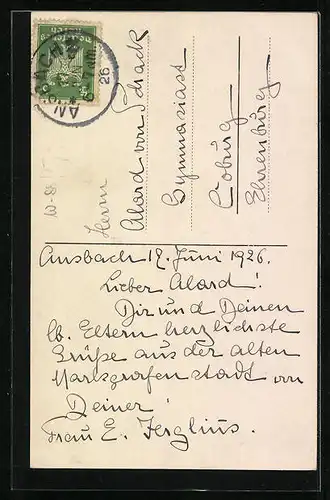 ANSBACH
26
Herrn
Alard von Schack
Gymnasiast
Coburg
Ehrenburg
Ansbach 12. Juni 1926.
Lieber Alard!
Dir und Deinen
lb. Eltern herzlichste
Grüße aus der alten
Markgrafenstadt von
Deiner
Frau E.